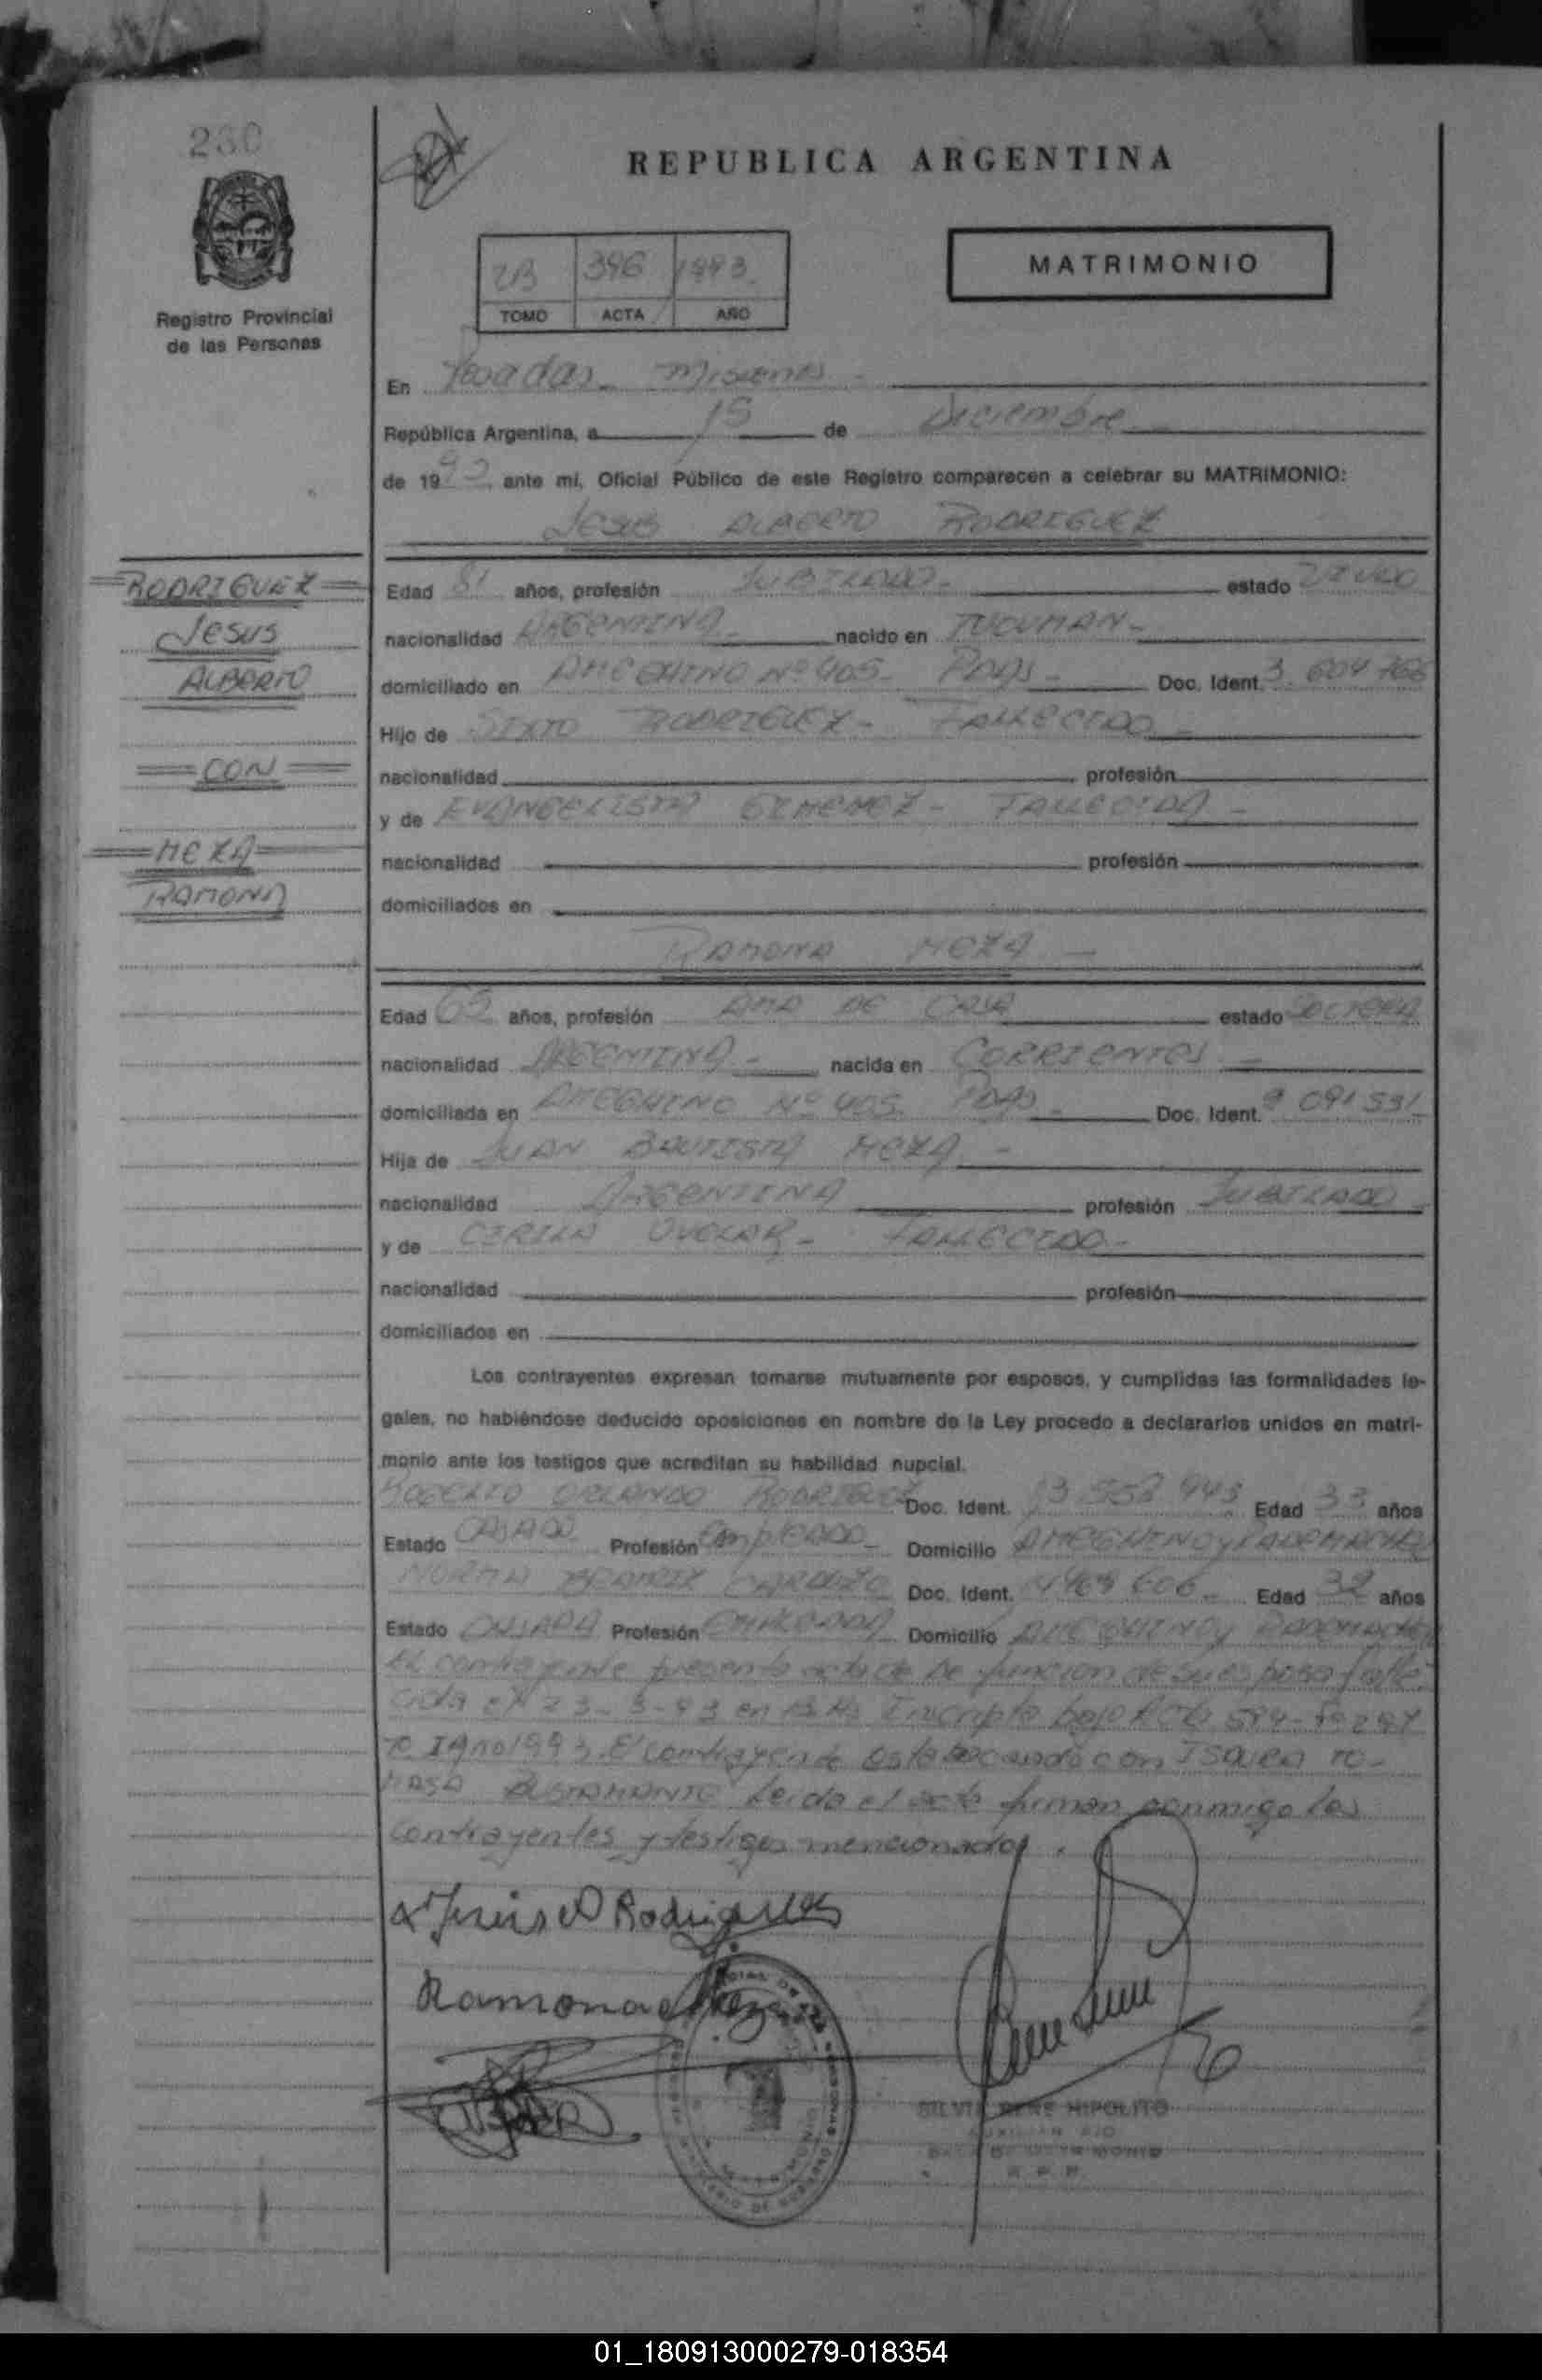 230
REPUBLICA ARGENTINA
2B 396 1993
TOMO ACTA AÑO
MATRIMONIO
Registro Provincial
de las Personas
En Posadas Misiones
República Argentina, a 15 de Diciembre
de 1993 ante mi, Oficial Público de este Registro comparecen a celebrar su MATRIMONIO:
JESUS ALBERTO RODRIGUEZ
RODRIGUEZ
JESUS
ALBERTO
CON
MEZA
RAMONA
Edad 81 años, profesión JUBILADO estado VIUDO
nacionalidad ARGENTINA nacido en TUCUMAN
domiciliado en AMEGHINO Nº 405 PDAS Doc. Ident. 3 604 766
Hijo de SIXTO RODRIGUEZ - FALLECIDO
nacionalidad profesión
y de EVANGELISTA GIMENEZ - FALLECIDA -
nacionalidad profesión
domiciliados en
RAMONA MEZA
Edad 65 años, profesión AMA DE CASA estado SOLTERA
nacionalidad ARGENTINA nacida en CORRIENTES
domiciliada en AMEGHINO Nº 405 PDAS Doc. Ident. 9 091 531
Hija de JUAN BAUTISTA MEZA
nacionalidad ARGENTINA profesión JUBILADO
y de CIRILA OVELAR - FALLECIDO -
nacionalidad profesión
domiciliados en
Los contrayentes expresan tomarse mutuamente por esposos, y cumplidas las formalidades le-
gales, no habiéndose deducido oposiciones en nombre de la Ley procedo a declararlos unidos en matri-
monio ante los testigos que acreditan su habilidad nupcial.
ROGELIO ORLANDO RODRIGUEZ Doc. Ident. 13 558 943 Edad 33 años
Estado CASADO Profesión EMPLEADO Domicilio AMEGHINO y RADEMACHER
NORMA BEATRIZ CARDOZO Doc. Ident. Edad 32 años
Estado CASADA Profesión EMPLEADA Domicilio AMEGHINO y RADEMACHER
El contrayente presenta acta de defuncion de su esposa falle-
cida el 23-3-93 en Inscripta bajo Acta 594
Tº I Año 1993. El contrayente estaba casado con ISAURA TO-
MASA BUSTAMANTE Leida el acta firman conmigo los
contrayentes y testigos mencionados.
Jesus A Rodriguez
Ramona Meza
SILVIA RENE HIPOLITO
R. P. P.
01_180913000279-018354